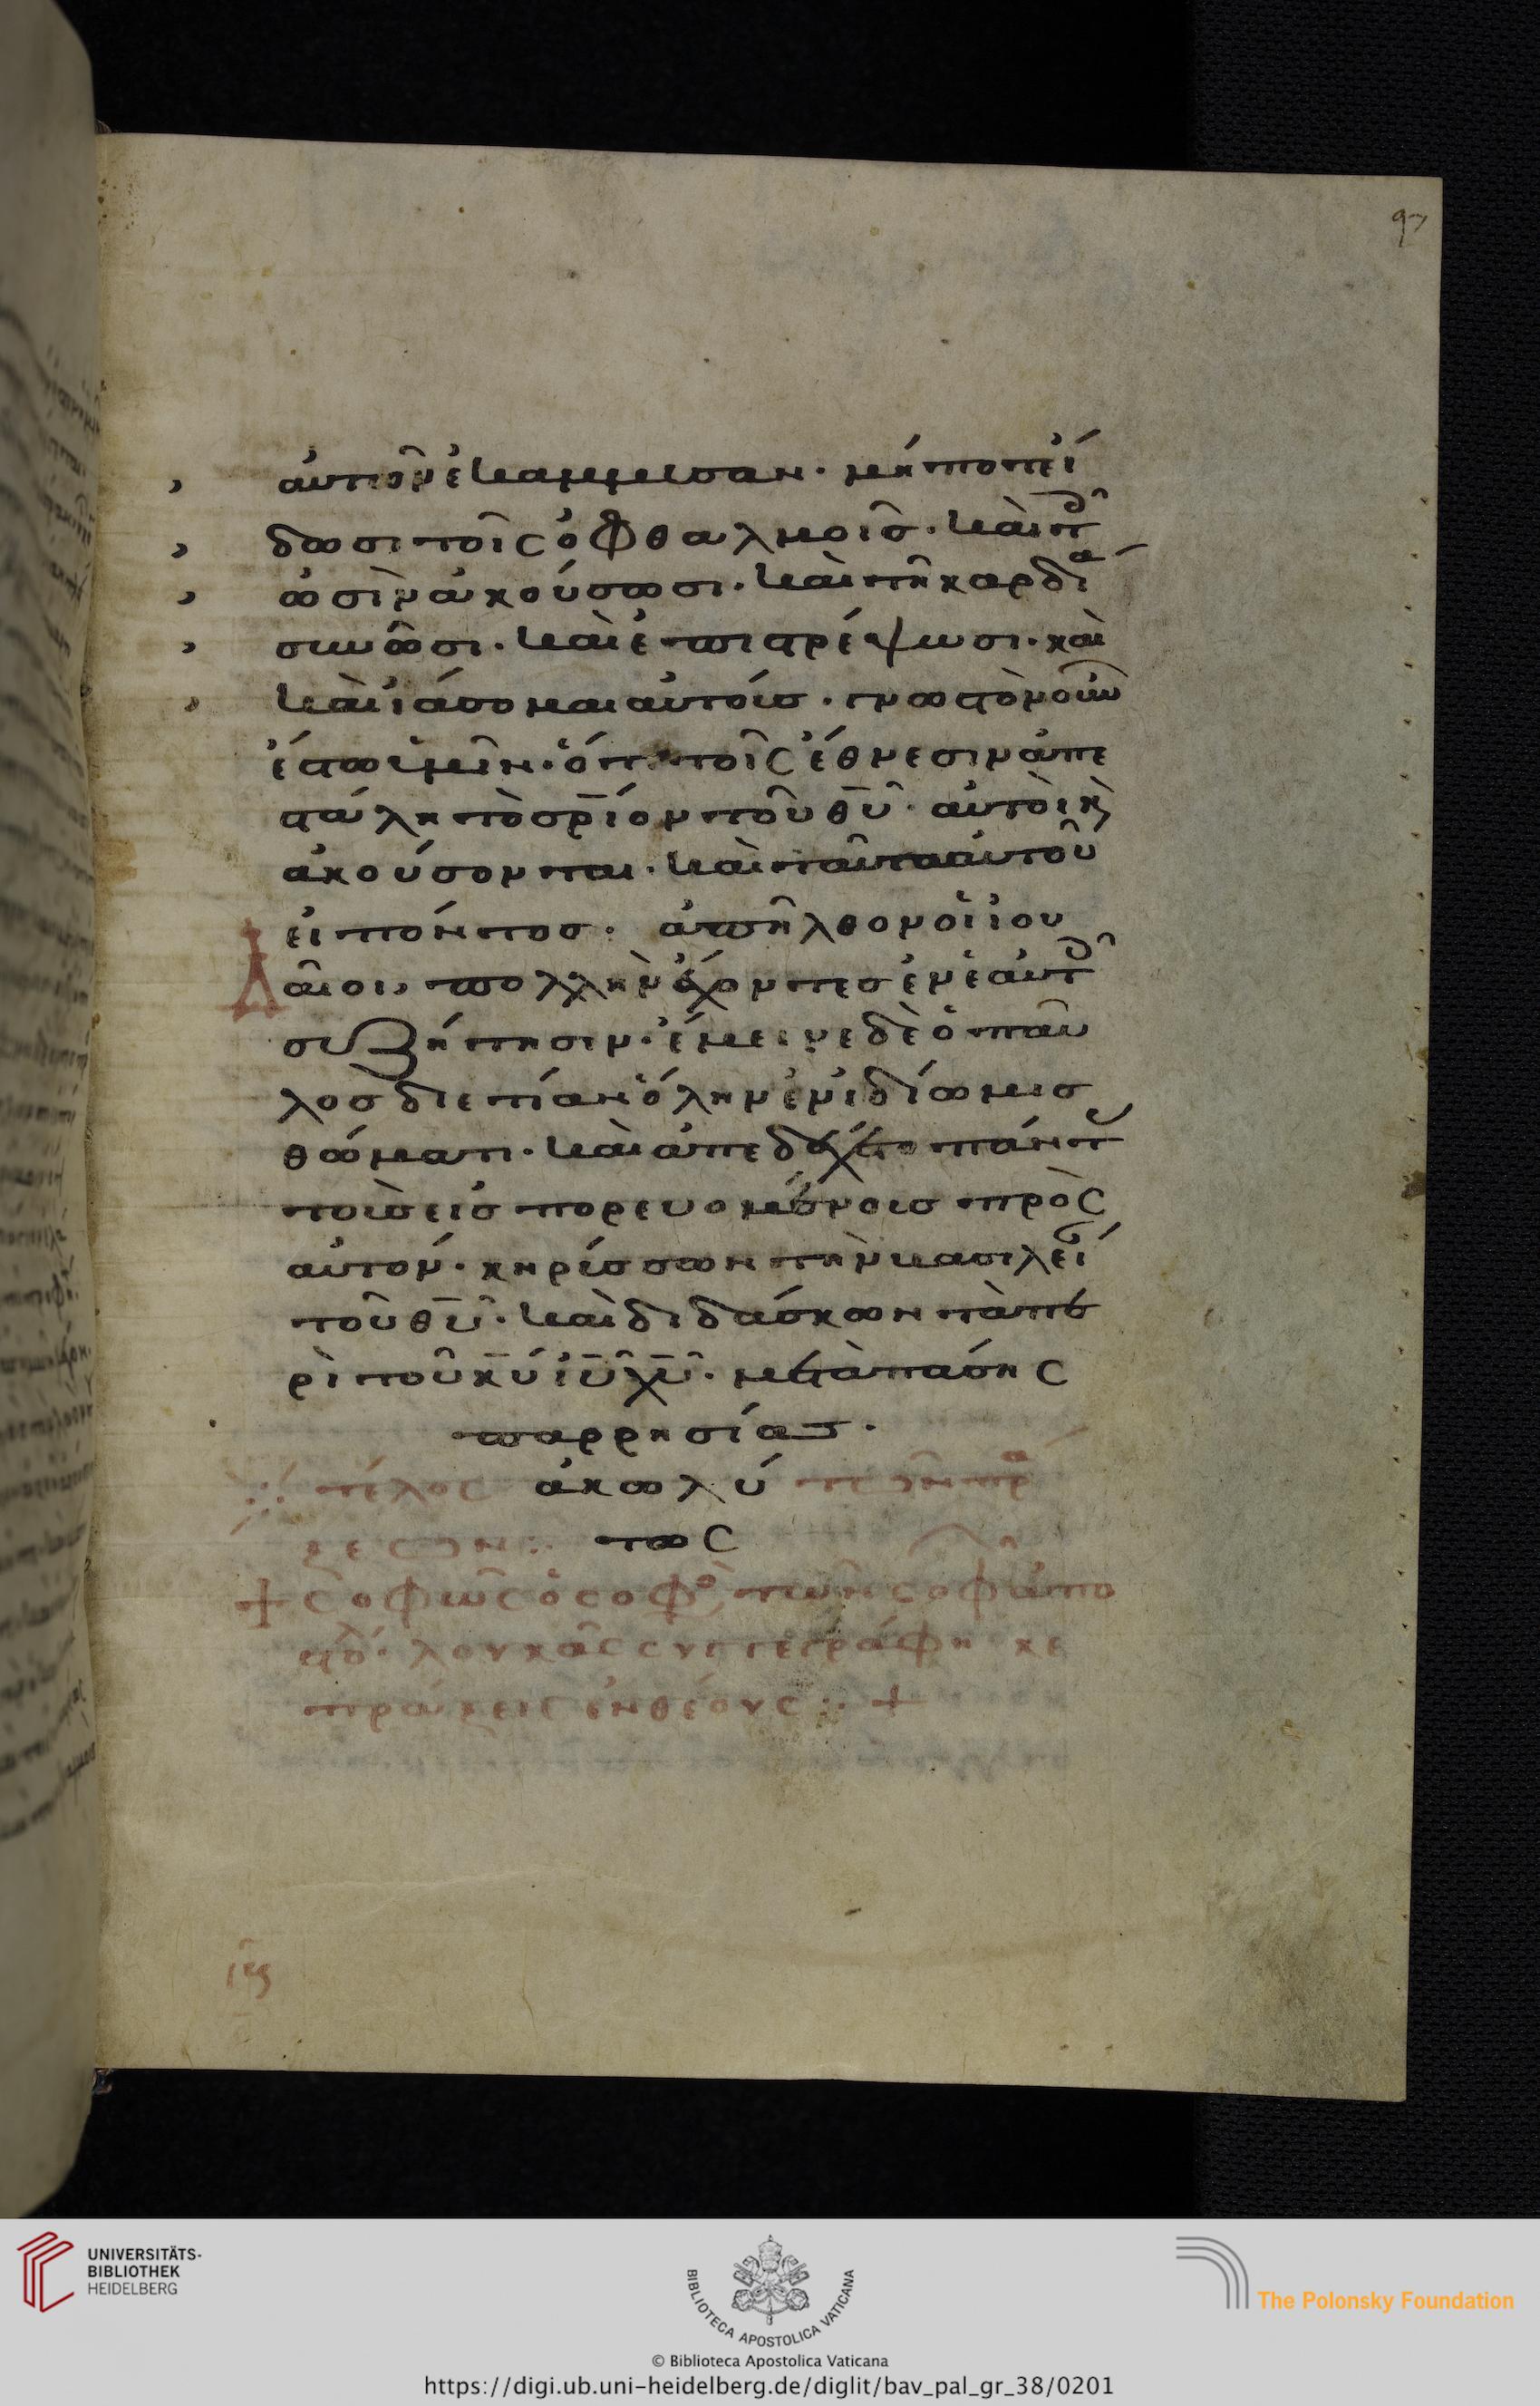 97
αὐτῶν ἐκάμμυσαν· μήποτε ἴ
δωσι τοῖς ὀφθαλμοῖς· καὶ τοῖς
ὠσὶν ἀκούσωσι· καὶ τῆ καρδία
συνῶσι· καὶ ἐπιστρέψωσι· καὶ
καὶ ἰάσομαι αὐτούς· γνωστὸν οὖν
ἔστω ὑμῖν· ὅτι τοῖς ἔθνεσιν ἀπε
στάλη τὸ σρ̅ιον τοῦ θυ̅· αὐτοὶ κ(αὶ)
ἀκούσονται· καὶ ταῦτα αὐτοῦ
εἰπόντος· ἀπῆλθον οἱ ἰου
δαῖοι, πολλὴν ἔχοντες ἐν ἑαυτοῖς
συζήτησιν· ἔμεινε δὲ ὁ παῦ
λος διετίαν ὅλην ἐν ἰδίω μισ
θώματι· καὶ ἀπεδέχετο πάντας
τοὺς εἰσπορευομένους πρὸς
αὐτόν· κηρύσσων τὴν βασιλεί
τοῦ θυ̅· καὶ διδάσκων τὰ πε
ρὶ τοῦ κυ̅ ιυ̅ χυ̅· μετὰ πάσης
παρρησίας·
τέλος ἀκωλύ τῶν πρά
ξεων: τως
+ σοφῶς ὁ σοφὸς τῶν σοφῶν ἀπο
λουκᾶς συγγεγράφηκε
πράξεις ἐνθέους: +
UNIVERSITÄTS-
BIBLIOTHEK
HEIDELBERG
BIBLIOTECA APOSTOLICA VATICANA
The Polonsky Foundation
© Biblioteca Apostolica Vaticana
https://digi.ub.uni-heidelberg.de/diglit/bav_pal_gr_38/0201